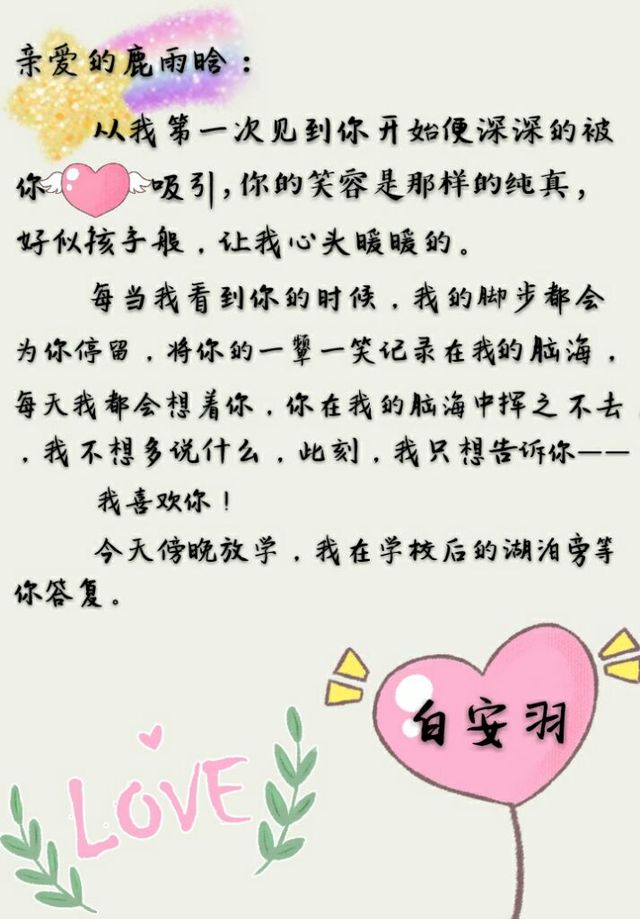 亲爱的鹿雨晗：
从我第一次见到你开始便深深的被
你吸引，你的笑容是那样的纯真，
好似孩子般，让我心头暖暖的。
每当我看到你的时候，我的脚步都会
为你停留，将你的一颦一笑记录在我的脑海，
每天我都会想着你，你在我的脑海中挥之不去，
，我不想多说什么，此刻，我只想告诉你——
我喜欢你！
今天傍晚放学，我在学校后的湖泊旁等
你答复。
白安羽
LOVE